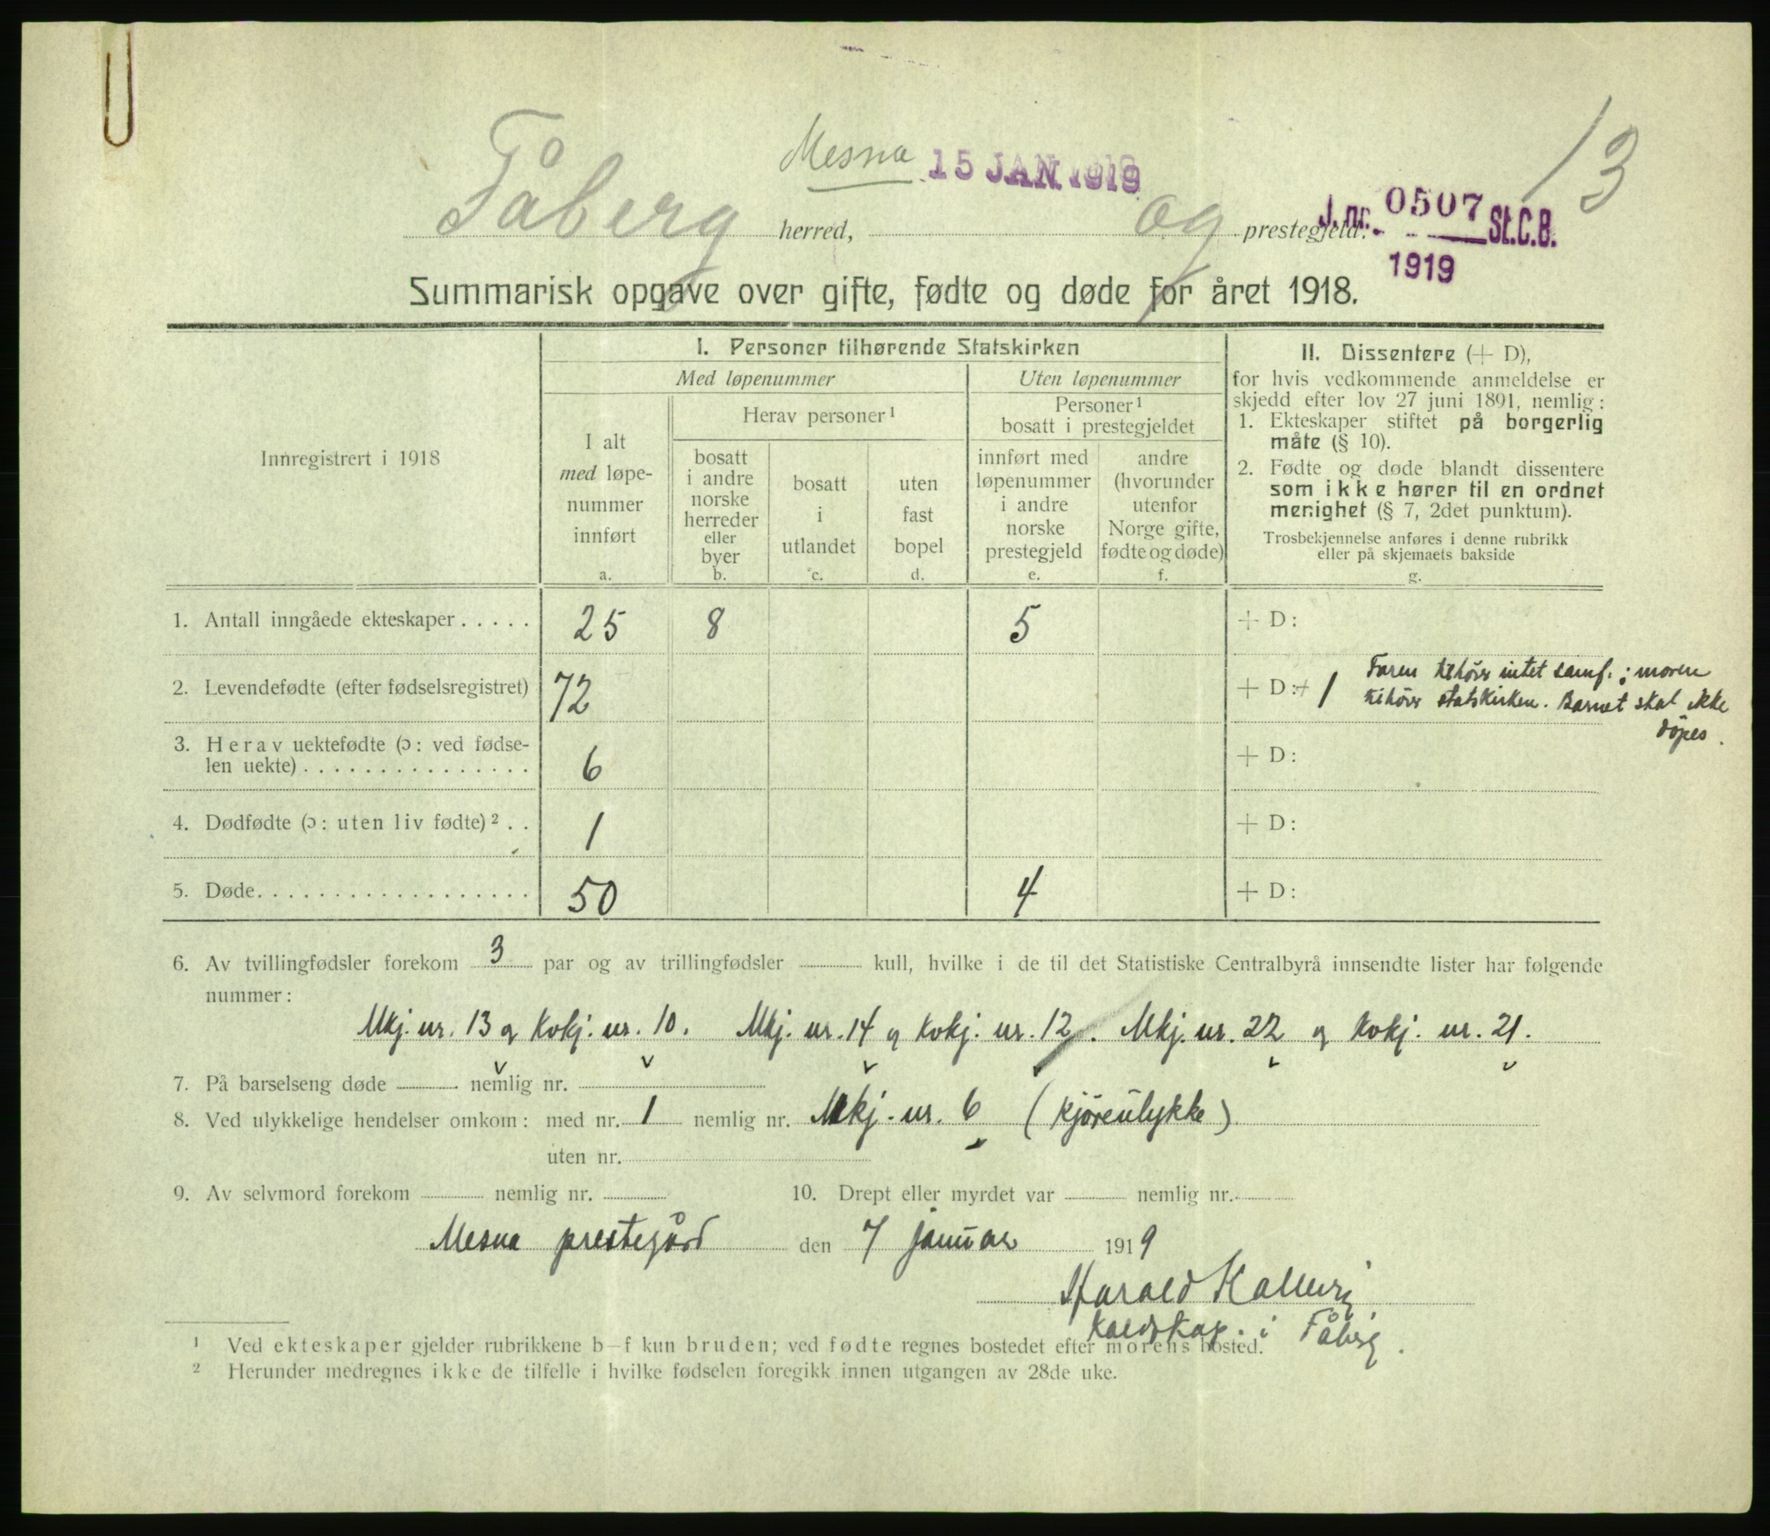 13
Mesna 15 JAN. 1919
Fåberg herred, og prestegjeld.
J. nr. 0507 St.C.B.
1919
Summarisk opgave over gifte, fødte og døde for året 1918.
Innregistrert i 1918
I. Personer tilhørende Statskirken
Med løpenummer
Uten løpenummer
I alt
med løpe-
nummer
innført
a.
Herav personer¹
bosatt
i andre
norske
herreder
eller
byer
b.
bosatt
i
utlandet
c.
uten
fast
bopel
d.
Personer¹
bosatt i prestegjeldet
innført med
løpenummer
i andre
norske
prestegjeld
e.
andre
(hvorunder
utenfor
Norge gifte,
fødte og døde)
f.
II. Dissentere (+ D),
for hvis vedkommende anmeldelse er
skjedd efter lov 27 juni 1891, nemlig:
1. Ekteskaper stiftet på borgerlig
måte (§ 10).
2. Fødte og døde blandt dissentere
som ikke hører til en ordnet
menighet (§ 7, 2det punktum).
Trosbekjennelse anføres i denne rubrikk
eller på skjemaets bakside
g.
1. Antall inngåede ekteskaper..... 25 8 5 + D:
2. Levendefødte (efter fødselsregistret) 72 + D: + 1 Faren tilhører intet samf.; moren
tilhører statskirken. Barnet skal ikke
døpes.
3. Herav uektefødte (ɔ: ved fødse-
len uekte)............... 6 + D:
4. Dødfødte (ɔ: uten liv fødte)².. 1 + D:
5. Døde.................. 50 4 + D:
6. Av tvillingfødsler forekom 3 par og av trillingfødsler kull, hvilke i de til det Statistiske Centralbyrå innsendte lister har følgende
nummer:
Mkj. nr. 13 og Kvkj. nr. 10. Mkj. nr. 14 og Kvkj. nr. 12. Mkj. nr. 22 og Kvkj. nr. 21.
7. På barselseng døde nemlig nr.
8. Ved ulykkelige hendelser omkom: med nr. 1 nemlig nr. Mkj. nr. 6 (kjøreulykke)
uten nr.
9. Av selvmord forekom nemlig nr. 10. Drept eller myrdet var nemlig nr.
Mesna prestegård den 7 januar 1919
Harald
i Fåberg.
¹ Ved ekteskaper gjelder rubrikkene b—f kun bruden; ved fødte regnes bostedet efter morens bosted.
² Herunder medregnes ikke de tilfelle i hvilke fødselen foregikk innen utgangen av 28de uke.